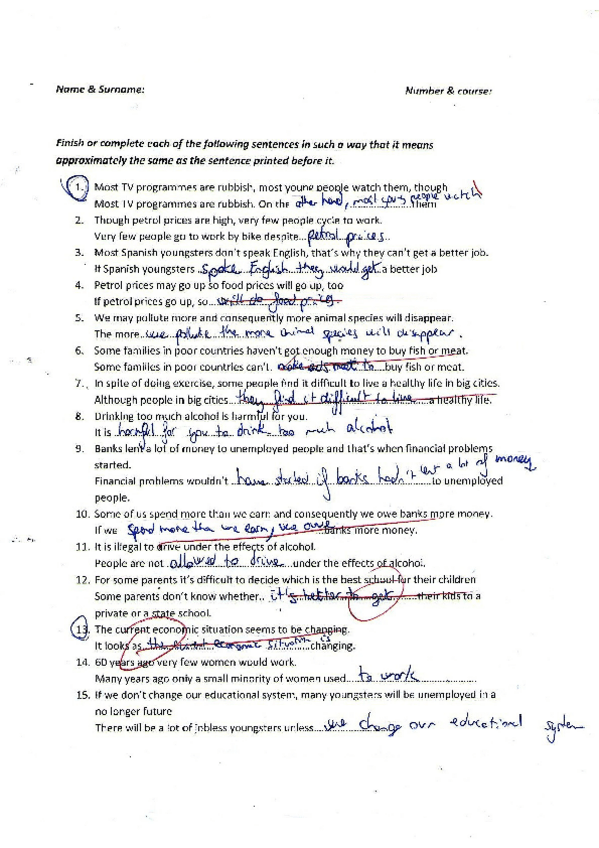 Name & Surname: Number & course:
Finish or complete each of the following sentences in such a way that it means
approximately the same as the sentence printed before it.
1. Most TV programmes are rubbish, most young people watch them, though
Most TV programmes are rubbish. On the other hand, most young people watch them
2. Though petrol prices are high, very few people cycle to work.
Very few people go to work by bike despite...petrol prices..
3. Most Spanish youngsters don't speak English, that's why they can't get a better job.
If Spanish youngsters ..spoke English they would get a better job
4. Petrol prices may go up so food prices will go up, too
If petrol prices go up, so ...will do food prices
5. We may pollute more and consequently more animal species will disappear.
The more...we pollute the more animal species will disappear.
6. Some families in poor countries haven't got enough money to buy fish or meat.
Some families in poor countries can't. make ends meet to ...buy fish or meat.
7. In spite of doing exercise, some people find it difficult to live a healthy life in big cities.
Although people in big cities they find it difficult to live a healthy life.
8. Drinking too much alcohol is harmful for you.
It is harmful for you to drink too much alcohol
9. Banks lent a lot of money to unemployed people and that's when financial problems
started.
Financial problems wouldn't have started if banks hadn't lent a lot of money to unemployed
people.
10. Some of us spend more than we earn and consequently we owe banks more money.
If we spend more than we earn, we owe banks more money.
11. It is illegal to drive under the effects of alcohol.
People are not allowed to drive...under the effects of alcohol.
12. For some parents it's difficult to decide which is the best school for their children
Some parents don't know whether.. it's better to get ......their kids to a
private or a state school.
13. The current economic situation seems to be changing.
It looks as the economic situation is changing.
14. 60 years ago very few women would work.
Many years ago only a small minority of women used....to work
15. If we don't change our educational system, many youngsters will be unemployed in a
no longer future
There will be a lot of jobless youngsters unless....we change our educational system